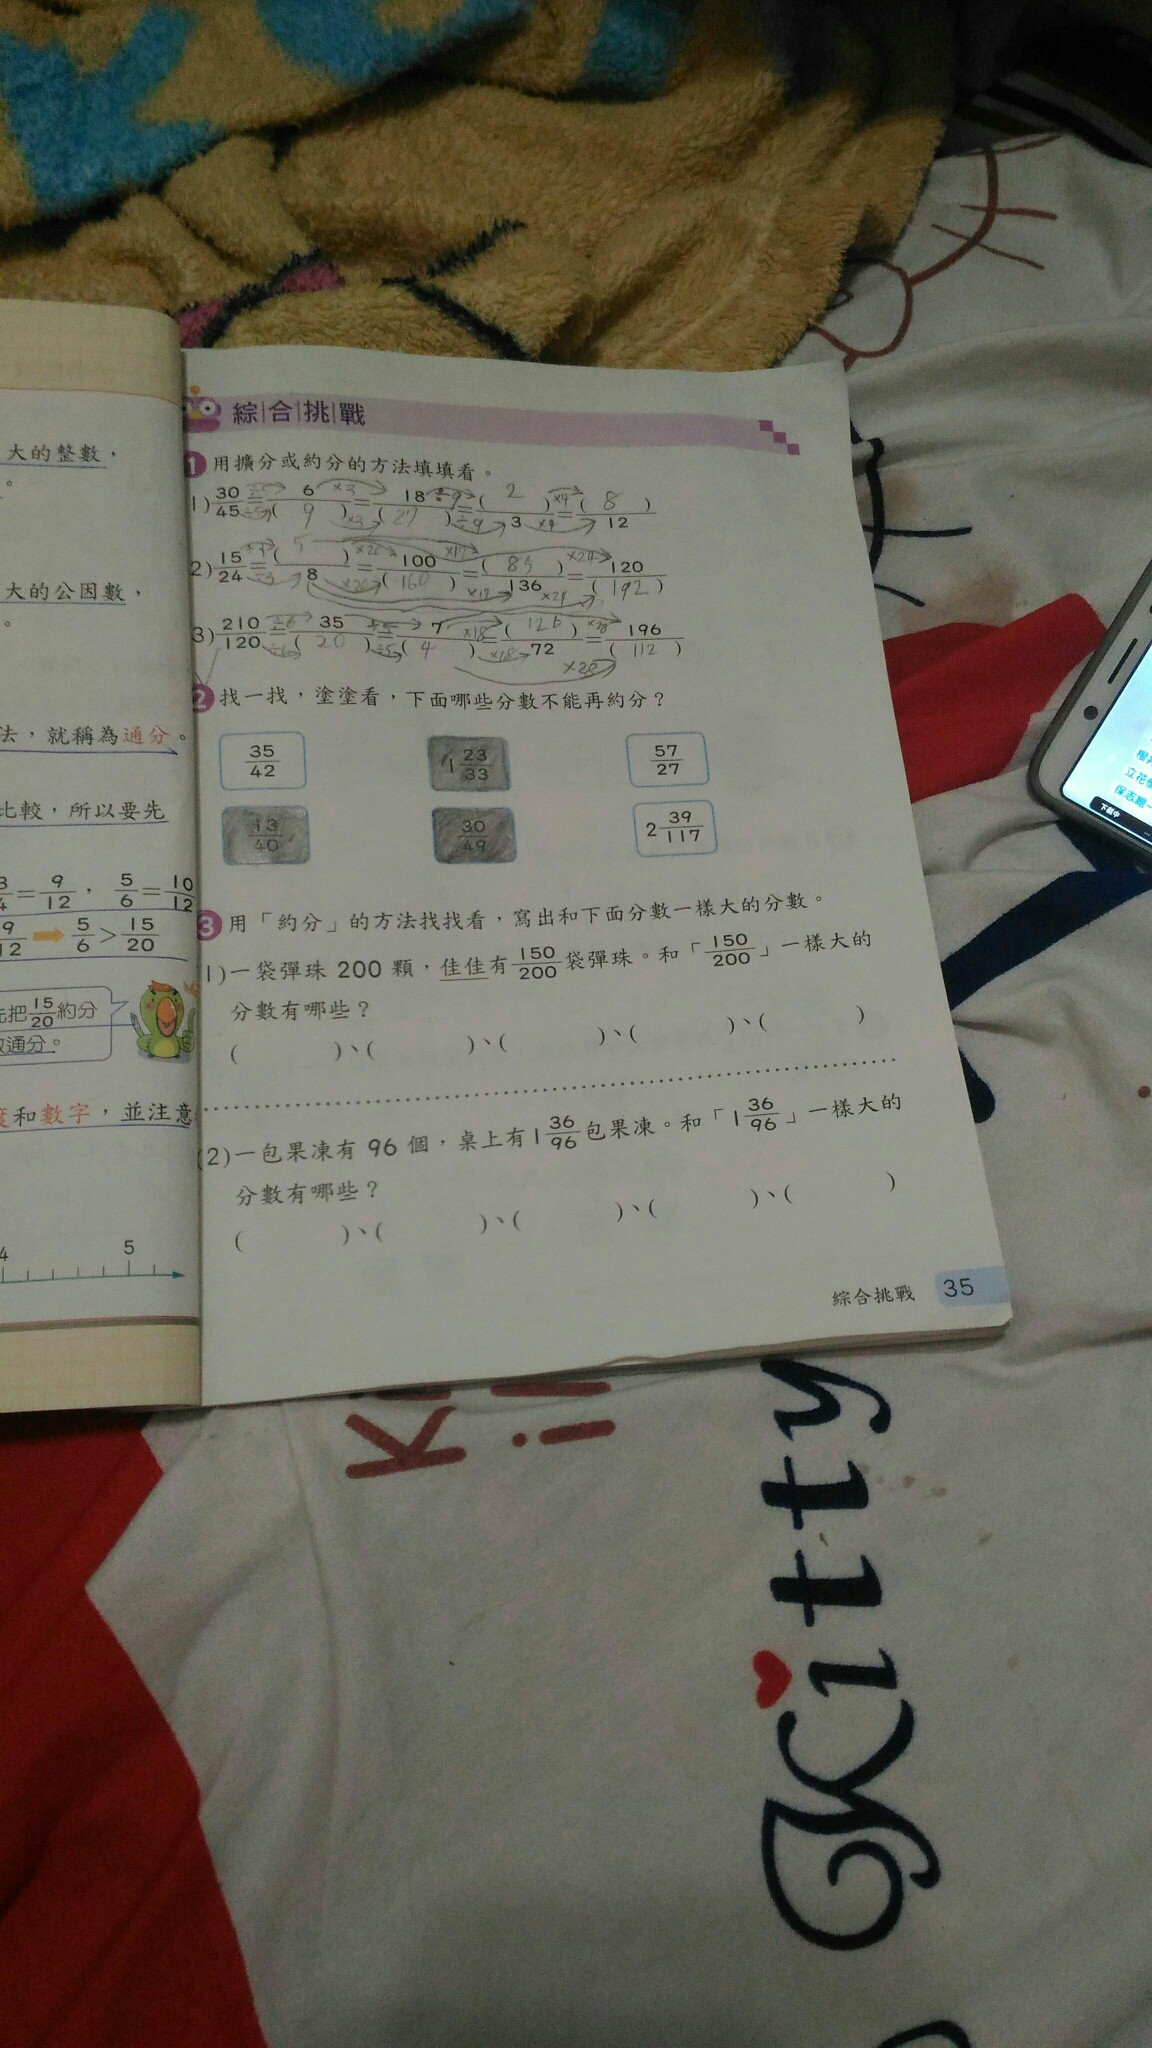 大的整數，
。
大的公因數，
。
法，就稱為通分。
比較，所以要先
3/4=9/12，5/6=10/12
9/12 ➡ 5/6>15/20
先把15/20約分
通分。
度和數字，並注意
4 5
綜合挑戰
1 用擴分或約分的方法填填看。
1) 30/45=6/(9)=18/(27)=(2)/3=(8)/12
÷5 ×3 ÷9 ×4
÷5 ×3 ÷9 ×4
2) 15/24=(5)/8=100/(160)=(85)/136=120/(192)
÷3 ×20 ×17 ×24
÷3 ×20 ×17 ×24
3) 210/120=35/(20)=7/(4)=(126)/72=196/(112)
÷6 ÷5 ×18 ×28
÷6 ÷5 ×18 ×28
2 找一找，塗塗看，下面哪些分數不能再約分？
35/42 1 23/33 57/27
13/40 30/49 2 39/117
3 用「約分」的方法找找看，寫出和下面分數一樣大的分數。
1)一袋彈珠 200 顆，佳佳有150/200袋彈珠。和「150/200」一樣大的
分數有哪些？
( )、( )、( )、( )、( )
(2)一包果凍有 96 個，桌上有1 36/96包果凍。和「1 36/96」一樣大的
分數有哪些？
( )、( )、( )、( )、( )
綜合挑戰 35
立花
下載中
Kitty